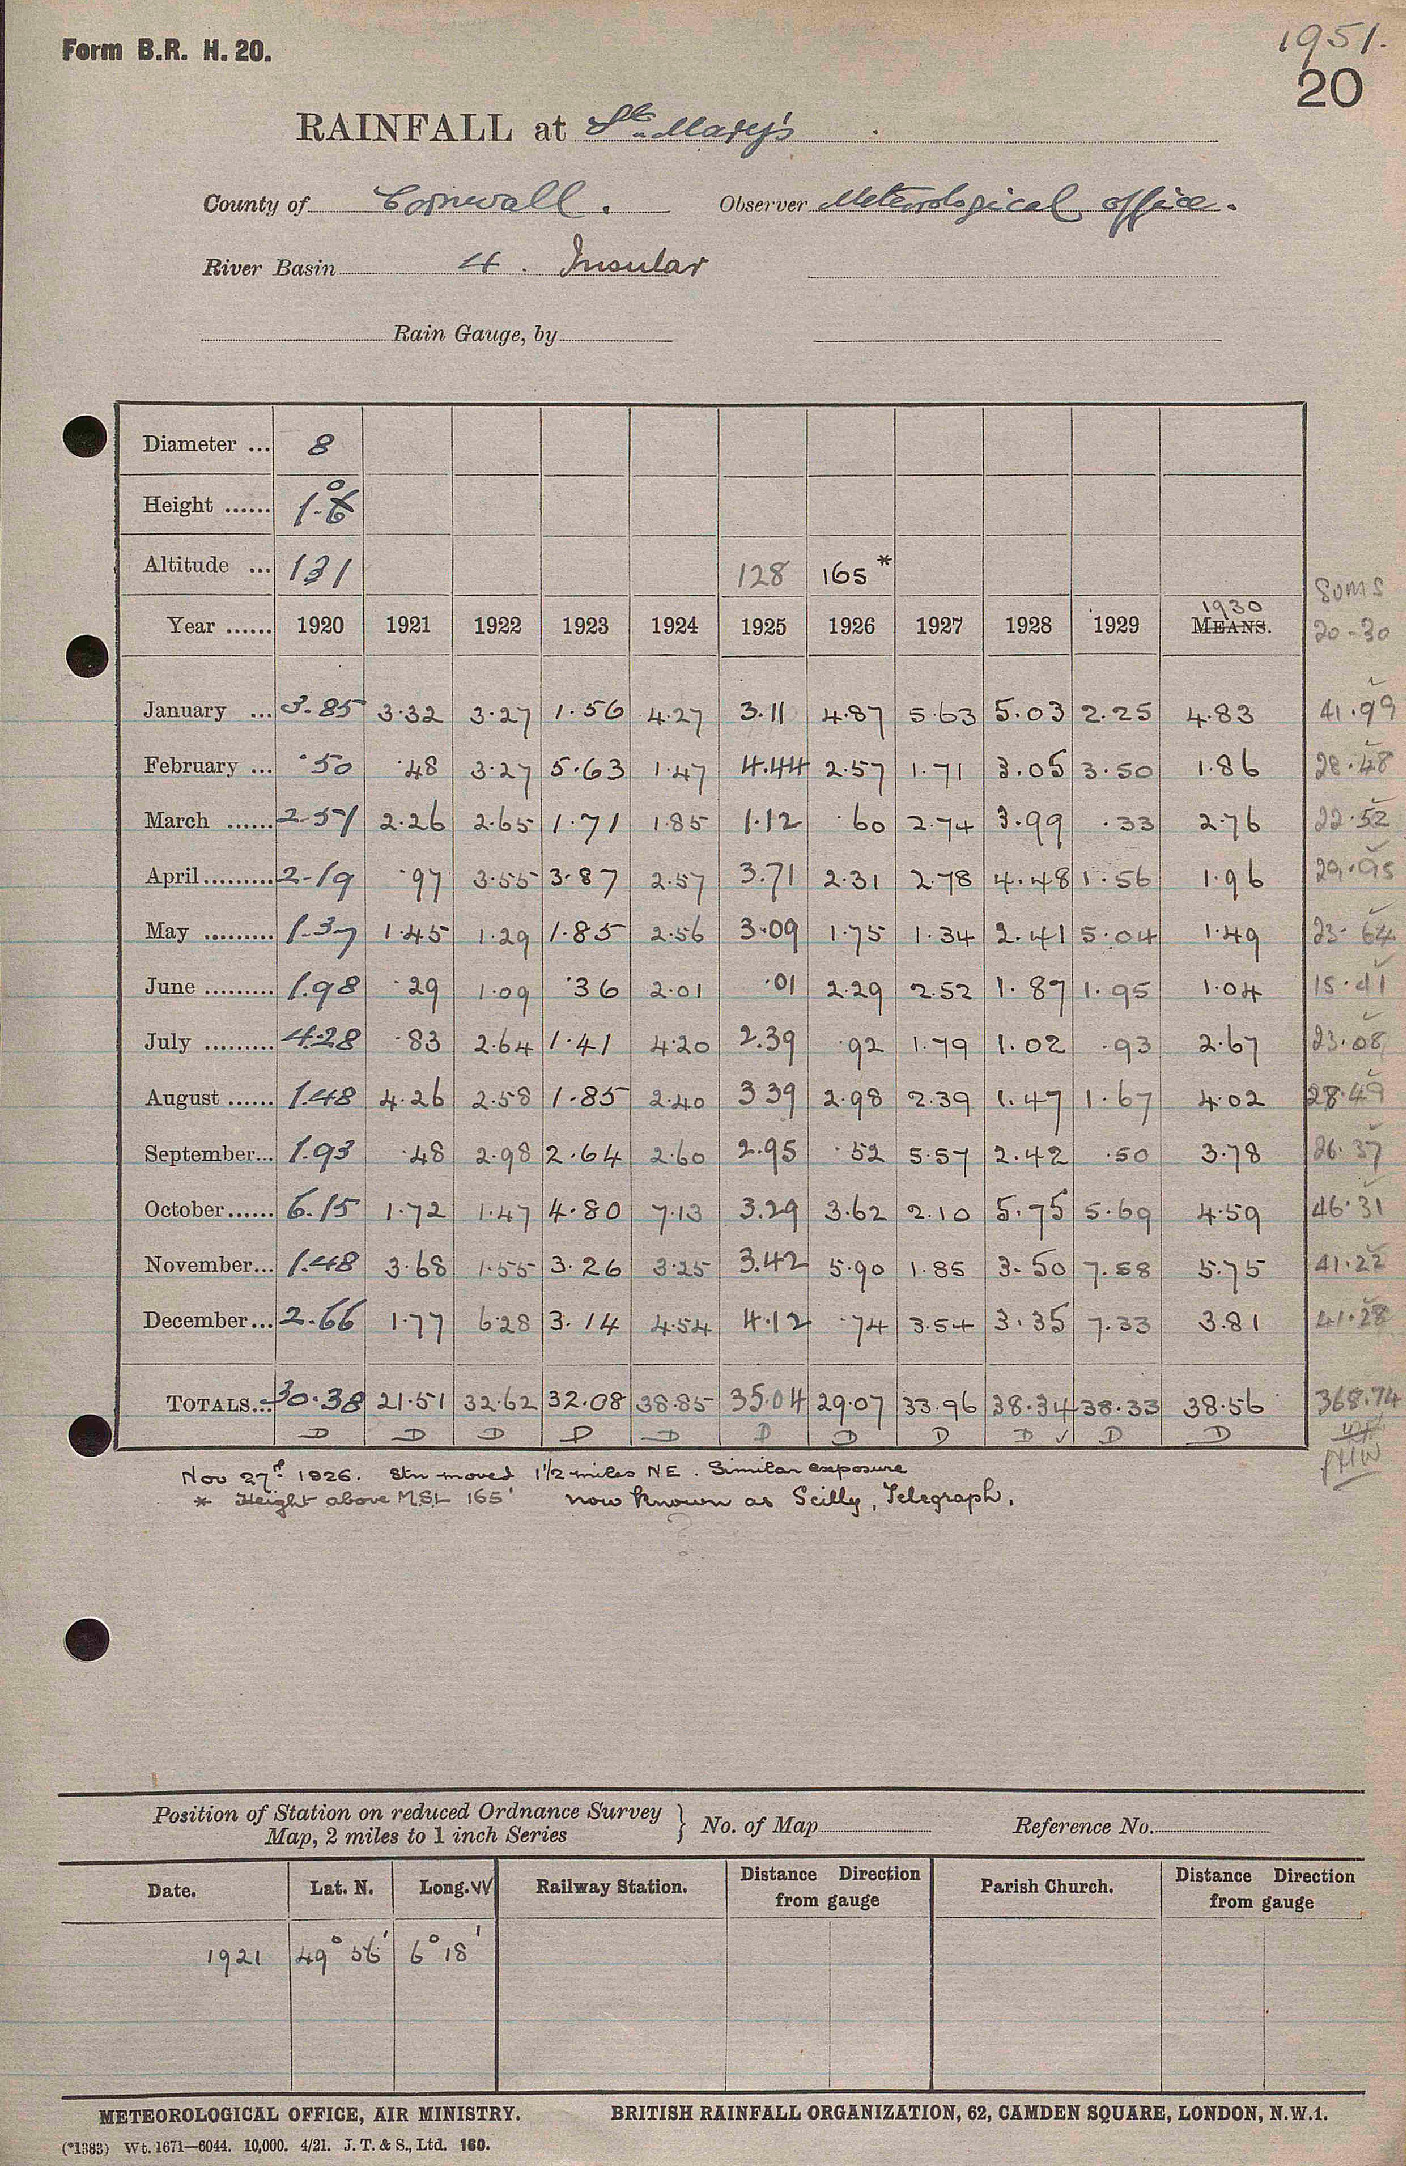 Form B.R. H. 20.
1951.
20
RAINFALL at St. Mary's
County of Cornwall. Observer Meteorological Office.
River Basin 4. Insular
Rain Gauge, by
Diameter ... 8
Height ...... 1.6 0
Altitude ... 131 128 165*
Year ...... 1920 1921 1922 1923 1924 1925 1926 1927 1928 1929 MEANS. 1930 Sums 20-30
January ... 3.85 3.32 3.27 1.56 4.27 3.11 4.87 5.63 5.03 2.25 4.83 41.99
February ... .50 .48 3.27 5.63 1.47 4.44 2.57 1.71 3.05 3.50 1.86 28.48
March ...... 2.51 2.26 2.65 1.71 1.85 1.12 .60 2.74 3.99 .33 2.76 22.52
April ......... 2.19 .97 3.55 3.87 2.57 3.71 2.31 2.78 4.48 1.56 1.96 29.95
May ......... 1.37 1.45 1.29 1.85 2.56 3.09 1.75 1.34 2.41 5.04 1.49 23.64
June ......... 1.98 .29 1.09 .36 2.01 .01 2.29 2.52 1.87 1.95 1.04 15.41
July ......... 4.28 .83 2.64 1.41 4.20 2.39 .92 1.79 1.02 .93 2.67 23.08
August ...... 1.48 4.26 2.58 1.85 2.40 3.39 2.98 2.39 1.47 1.67 4.02 28.49
September... 1.93 .48 2.98 2.64 2.60 2.95 .52 5.57 2.42 .50 3.78 26.37
October...... 6.15 1.72 1.47 4.80 7.13 3.29 3.62 2.10 5.75 5.69 4.59 46.31
November... 1.48 3.68 1.55 3.26 3.25 3.42 5.90 1.85 3.50 7.58 5.75 41.22
December... 2.66 1.77 6.28 3.14 4.54 4.12 .74 3.54 3.35 7.33 3.81 41.28
TOTALS... 30.38 21.51 32.62 32.08 38.85 35.04 29.07 33.96 38.34 38.33 38.56 368.74
D D D D D D D D D ✓ D D
Nov 27th 1926. Stn moved 1 1/2 miles NE. Similar exposure
* Height above MSL 165' now known as Scilly, Telegraph.
?
Position of Station on reduced Ordnance Survey Map, 2 miles to 1 inch Series } No. of Map Reference No.
Date. Lat. N. Long. W Railway Station. Distance Direction from gauge Parish Church. Distance Direction from gauge
1921 49° 56' 6° 18'
METEOROLOGICAL OFFICE, AIR MINISTRY. BRITISH RAINFALL ORGANIZATION, 62, CAMDEN SQUARE, LONDON, N.W.1.
(*1383) Wt. 1671—6044. 10,000. 4/21. J. T. & S., Ltd. 160.